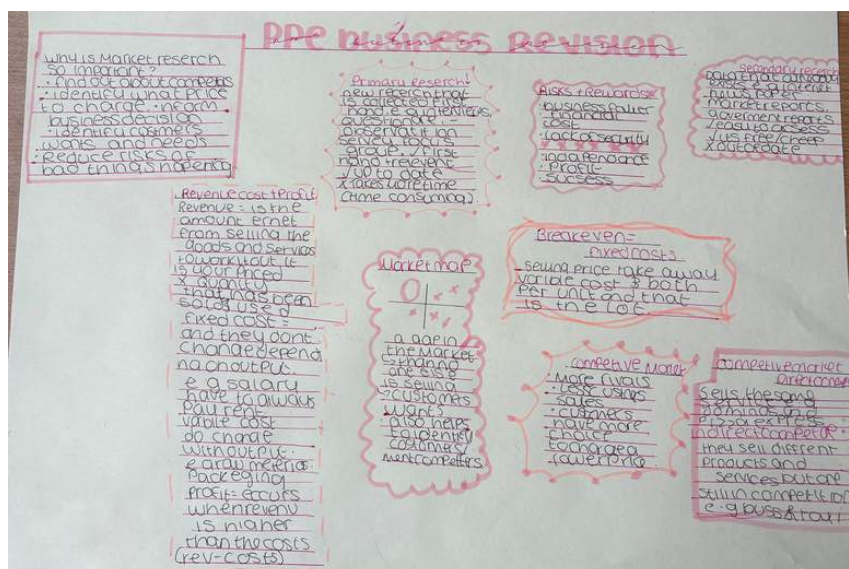 PPE business Revision
why is Market reserch
so important?
· find out about competeters
· identify what price
to charge · inform
business decision
· identify customers
wants and needs
· Reduce risks of
bad things happening
Primary Reserch:
new reserch that
is collected first
hand e.g
observatition
focus
group ✓first
hand
✓up to date
x takes up
(time consuming)
Risks + rewards
· business failier
· financial
cost
· lack of security
· independance
· profit
· sucsess
Data that already
exists e.g internet
market reports
goverment reports
✓easy to access
x out of date
Revenue cost + Profit
Revenue = is the
amount
from selling the
goods and services
to work out it
is your priced
x quantity
that has been
sold
fixed cost =
and they dont
change depend
ng on output.
e.g salary
have to always
pay rent
varible cost
do change
with output.
e.g raw
packeging
profit = occurs
when
is higher
than the costs
(rev-costs)
Market map
a gap in
the Market
is selling
customers
want
· also helps
to identify
customers
Breakeven =
fixed costs
selling price take away
varible cost & both
per unit and that
is the lot.
· More rivals
· less
sales
· customers
have more
choice
to charge a
lower price.
Competive market
sells the same
service e.g
dominos and
pizza express.
indirect
they sell different
products and
services but are
still in competition